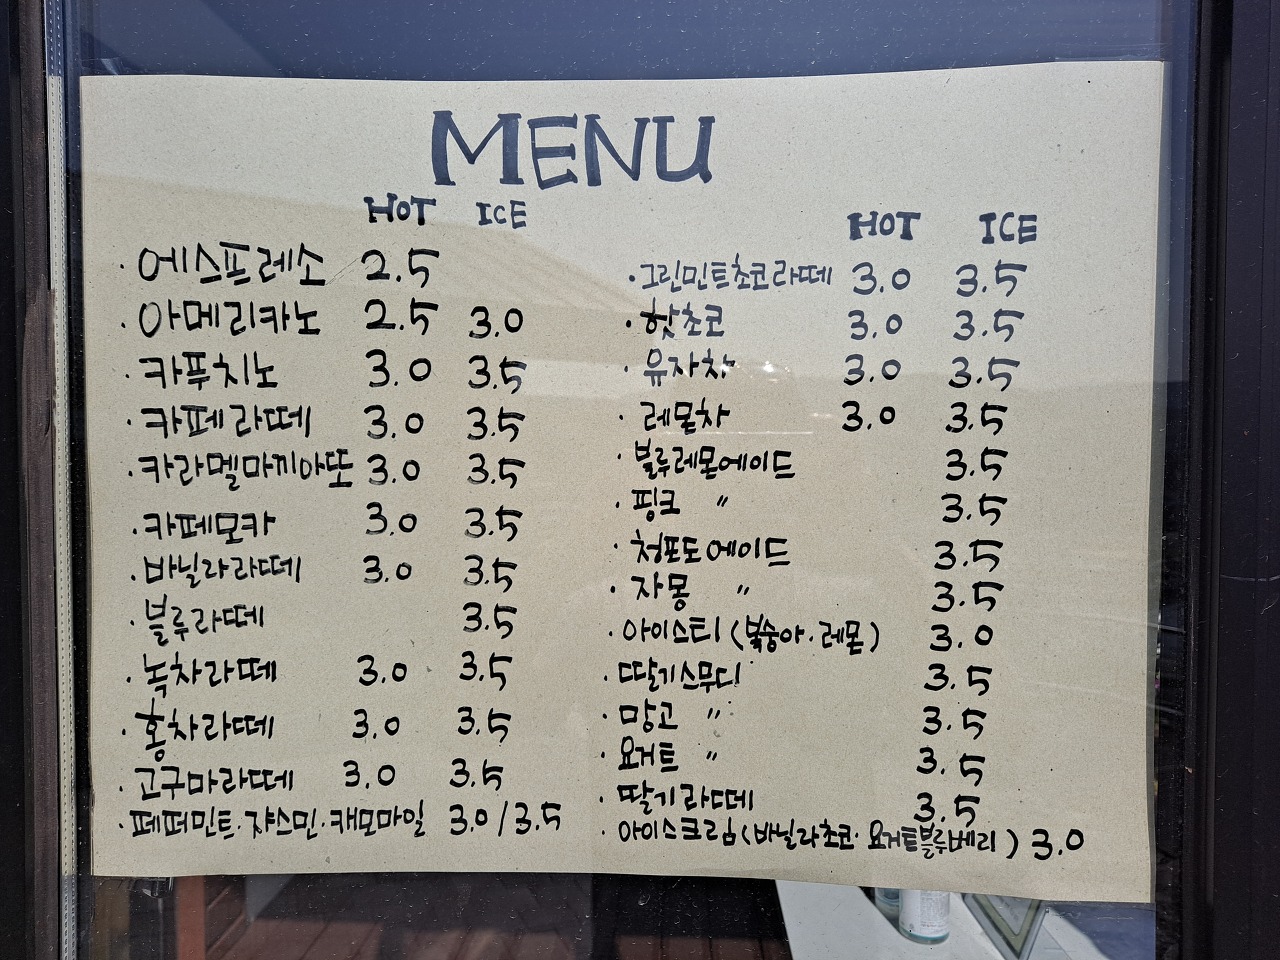 MENU
HOT ICE
· 에스프레소 2.5
· 아메리카노 2.5 3.0
· 카푸치노 3.0 3.5
· 카페라떼 3.0 3.5
· 카라멜마끼아또 3.0 3.5
· 카페모카 3.0 3.5
· 바닐라라떼 3.0 3.5
· 블루라떼 3.5
· 녹차라떼 3.0 3.5
· 홍차라떼 3.0 3.5
· 고구마라떼 3.0 3.5
· 페퍼민트·쟈스민·캐모마일 3.0/3.5
HOT ICE
· 그린민트초코라떼 3.0 3.5
· 핫초코 3.0 3.5
· 유자차 3.0 3.5
· 레몬차 3.0 3.5
· 블루레몬에이드 3.5
· 핑크 〃 3.5
· 청포도에이드 3.5
· 자몽 〃 3.5
· 아이스티 (복숭아·레몬) 3.0
· 딸기스무디 3.5
· 망고 〃 3.5
· 요거트 〃 3.5
· 딸기라떼 3.5
· 아이스크림(바닐라초코·요거트블루베리) 3.0